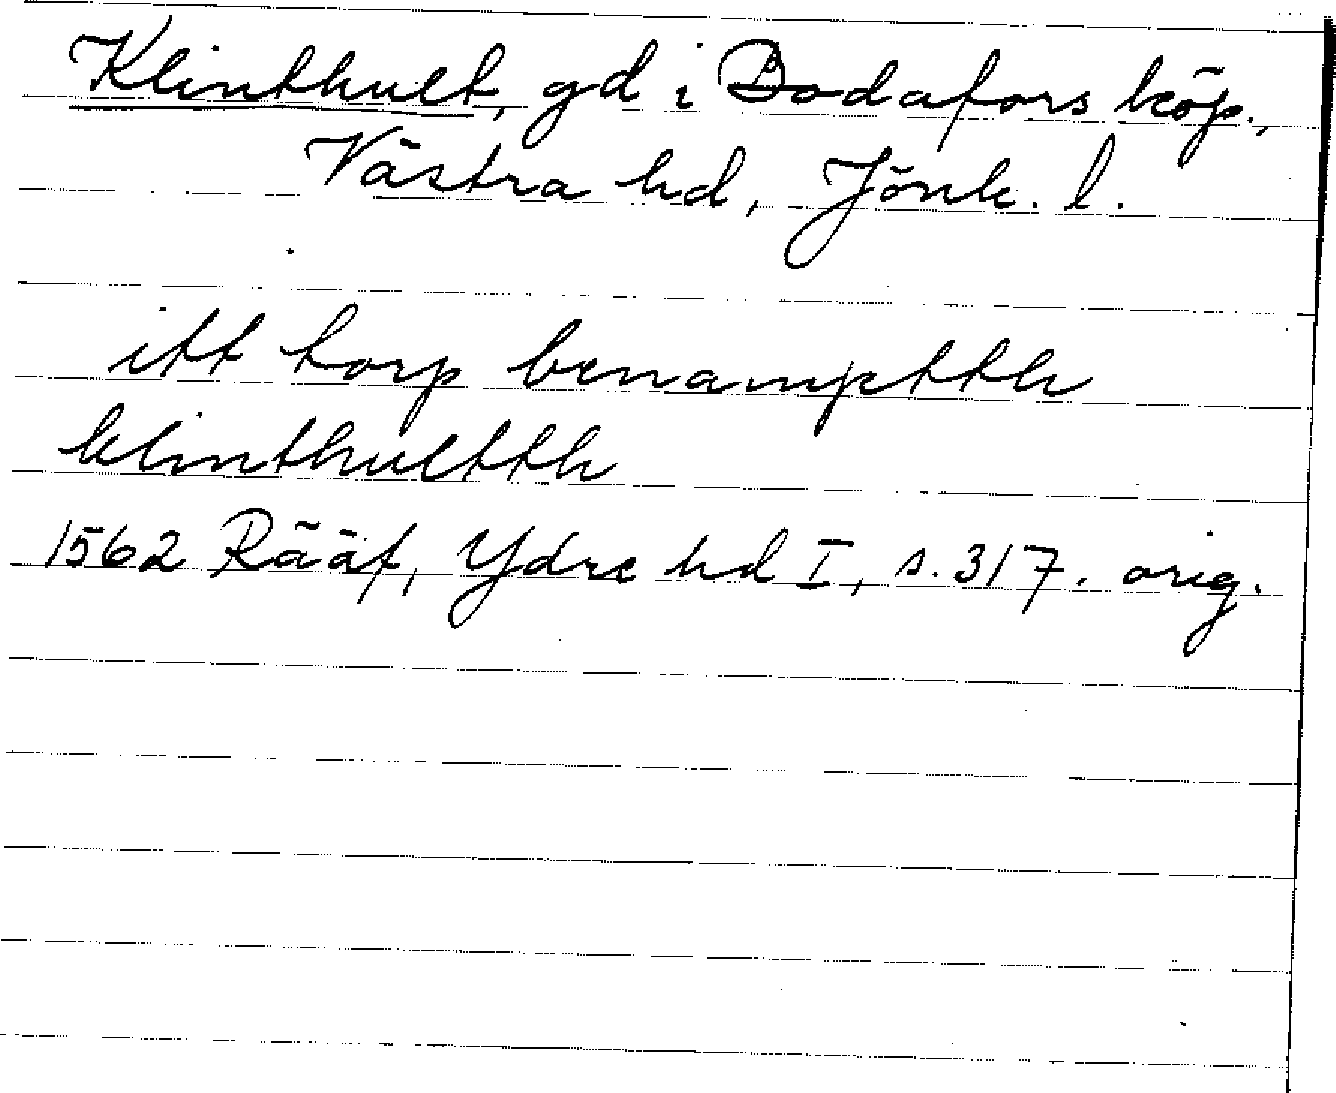 Klinthult, gd i Bodafors köp.,
Västra hd, Jönk. l.
itt torp benampttth
klinthulttth
1562 Rääf, Ydre hd I, s. 317. orig.